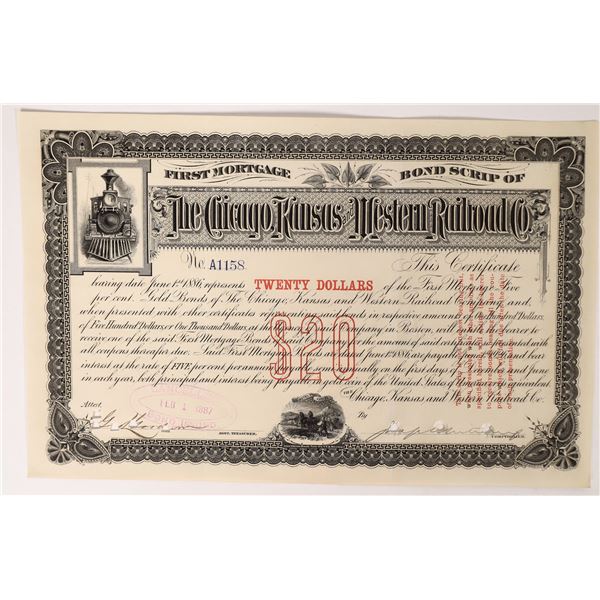 FIRST MORTGAGE BOND SCRIP OF
The Chicago, Kansas and Western Railroad Co.
No. A1158 This Certificate
bearing date June 1st 1886 represents TWENTY DOLLARS of the First Mortgage Five
per cent. Gold Bonds of The Chicago, Kansas and Western Railroad Company, and,
when presented with other certificates representing said bonds in respective amounts of One Hundred Dollars,
of Five Hundred Dollars, or One Thousand Dollars, at the Company in Boston, will entitle the bearer to
receive one of the said First Mortgage Bonds of the Company for the amount of said certificates and with
all coupons thereafter due. Said First Mortgage are dated June 1st 1886, are payable and bear
interest at the rate of FIVE per cent per annum
in each year, both principal and interest being payable in gold coin of the United States of
THE Chicago, Kansas and Western Railroad Co.
$20
Attest,
By
FEB 1 1887
ASST. TREASURER.
COMPTROLLER.